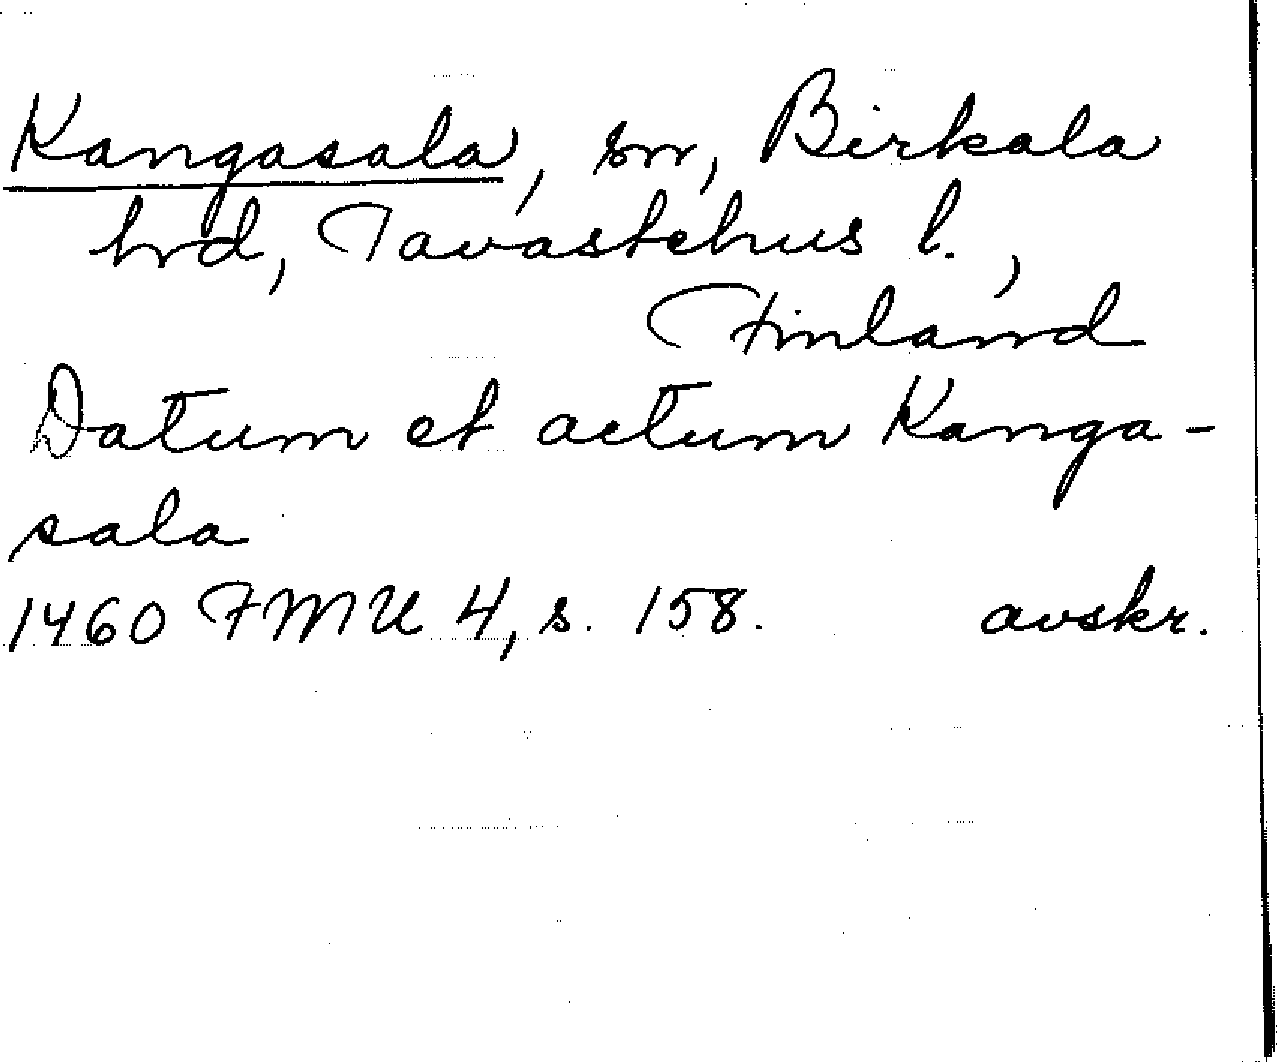 Kangasala, sn, Birkala
hrd, Tavastehus l.,
Finland
Datum et actum Kanga-
sala
1460 FMU 4, s. 158. avskr.